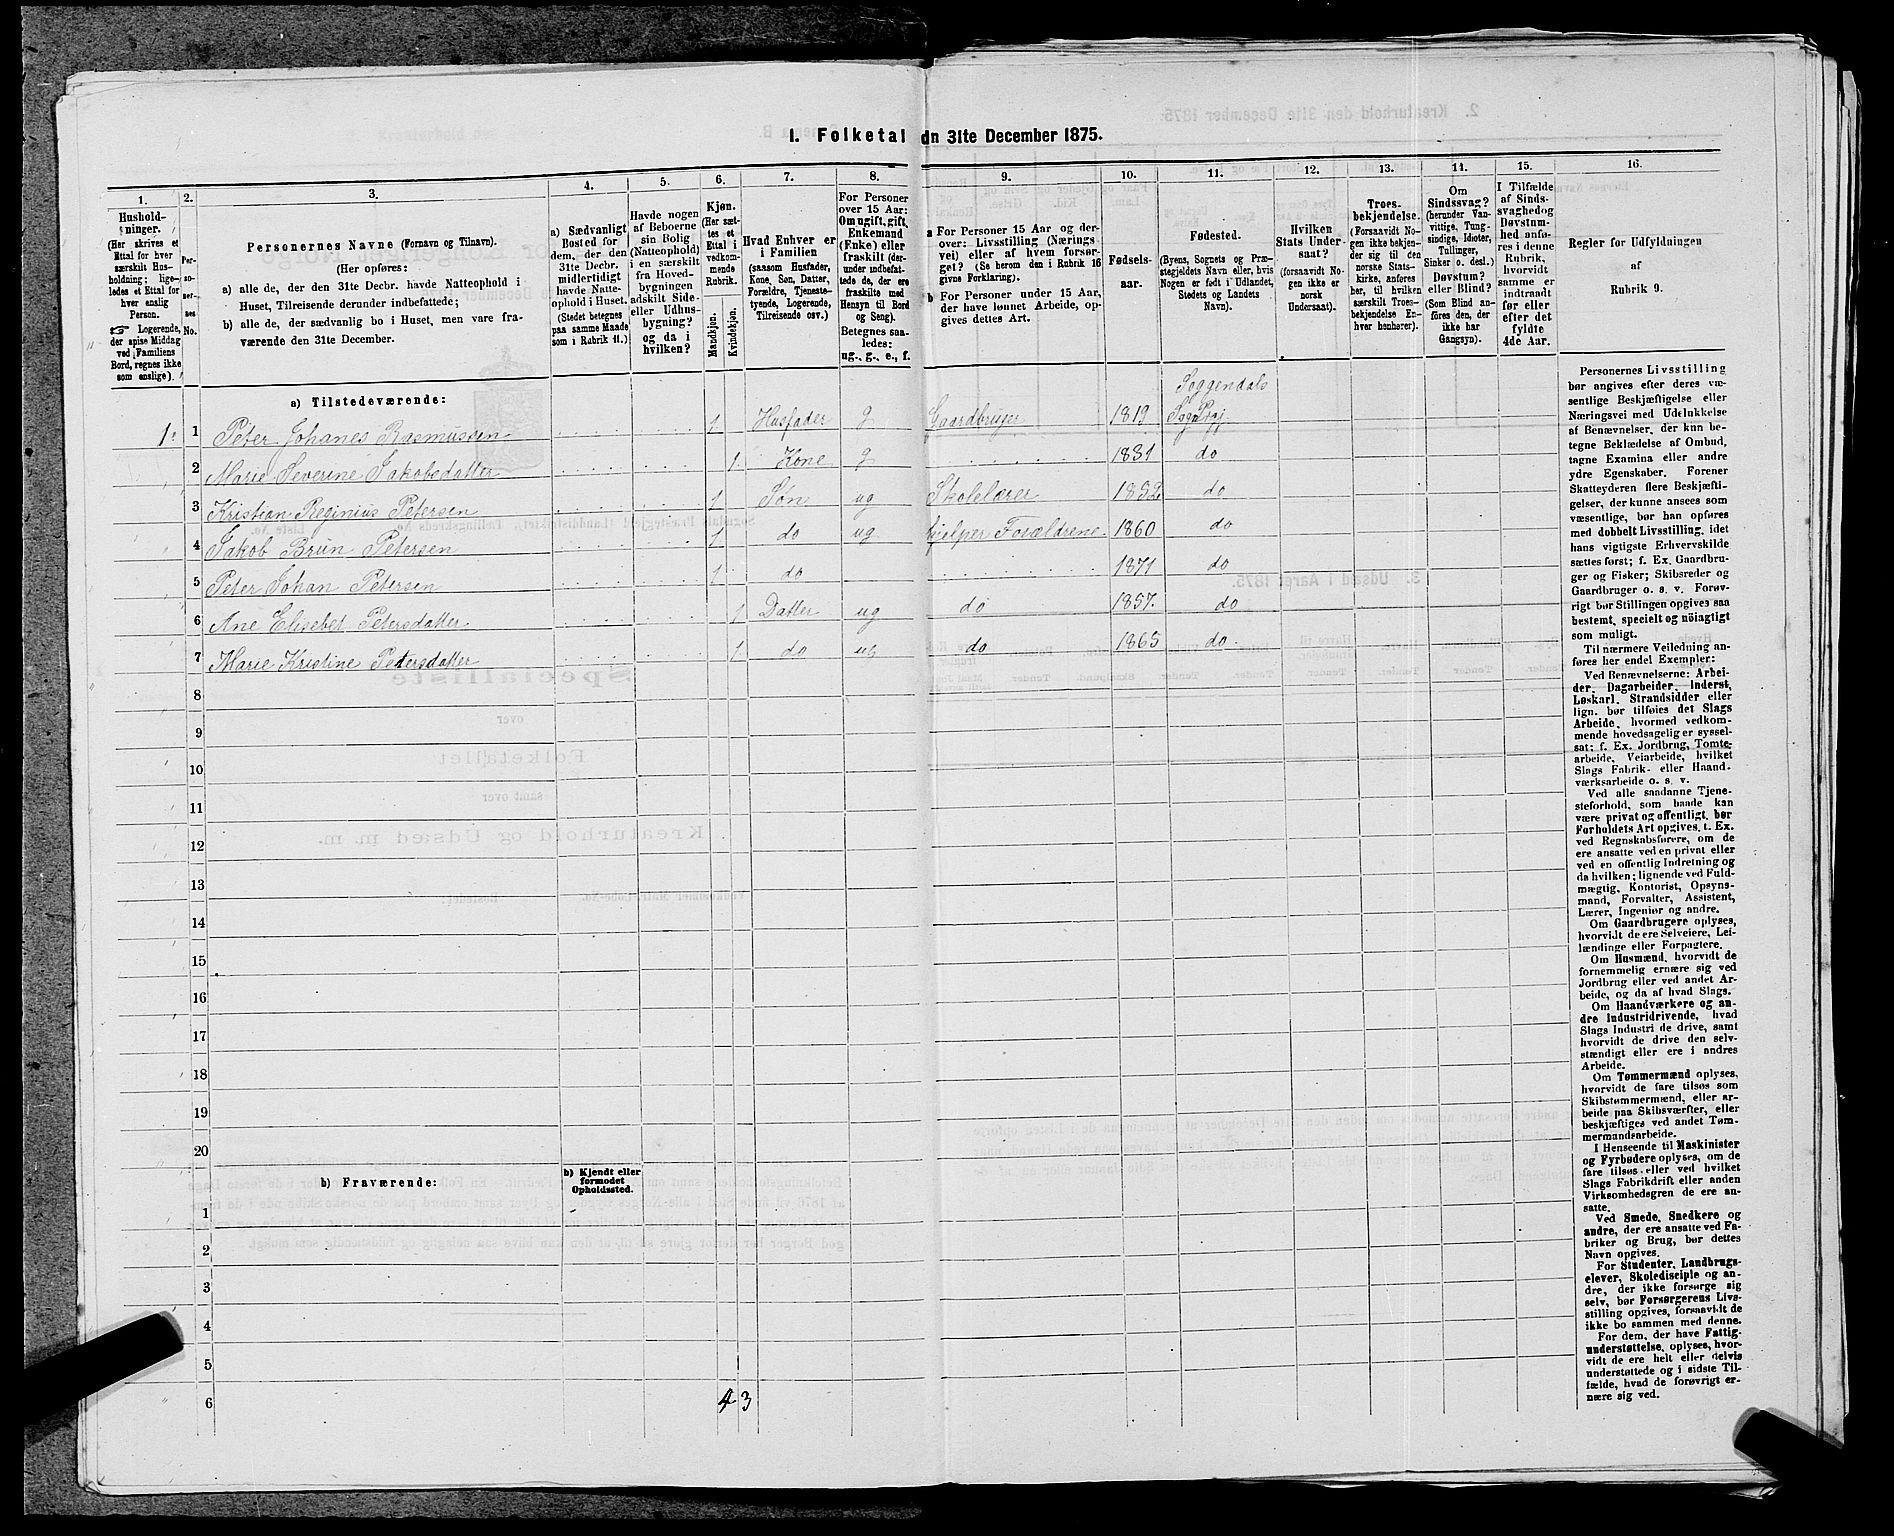 1. Folketal dn 31te December 1875.
1. 2. 3. 4. 5. 6. 7. 8. 9. 10. 11. 12. 13. 14. 15. 16.
Hushold-
ninger.
(Her skrives et
Ettal for hver
særskilt Hus-
holdning; lige-
ledes et Ettal for
hver enslig
Person.
☞ Logerende,
der spise Middag
ved Familiens
Bord, regnes ikke
som enslige).
Per-
so-
ner-
nes
No.
Personernes Navne (Fornavn og Tilnavn).
(Her opføres:
a) alle de, der den 31te Decbr. havde Natteophold i
Huset, Tilreisende derunder indbefattede;
b) alle de, der sædvanlig bo i Huset, men vare fra-
værende den 31te December.
a) Sædvanligt
Bosted for
dem, der den
31te Decbr.
midlertidigt
havde Natte-
ophold i Huset.
(Stedet betegnes
paa samme Maade
som i Rubrik 11.)
Havde nogen
af Beboerne
sin Bolig
(Natteophold)
i en særskilt
fra Hoved-
bygningen
adskilt Side-
eller Udhus-
bygning?
og da i
hvilken?
Kjøn.
(Her sæt-
tes et
Ettal i
vedkom-
mende
Rubrik.
Mandkjøn.
Kvindekjøn.
Hvad Enhver er
i Familien
(saasom Husfader,
Kone, Søn, Datter,
Forældre, Tjeneste-
tyende, Logerende,
Tilreisende osv.)
For Personer
over 15 Aar:
Om ugift, gift,
Enkemand
(Enke) eller
fraskilt (der-
under indbefat-
tede de, der ere
fraskilte med
Hensyn til Bord
og Seng).
Betegnes saa-
ledes:
ug., g., e., f.
a For Personer 15 Aar og der-
over: Livsstilling (Nærings-
vei) eller af hvem forsør-
get? (Se herom den i Rubrik 16
givne Forklaring).
b For Personer under 15 Aar,
der have lønnet Arbeide, op-
gives dettes Art.
Fødsels-
aar.
Fødested.
(Byens, Sognets og Præ-
stegjeldets Navn eller, hvis
Nogen er født i Udlandet,
Stedets og Landets
Navn).
Hvilken
Stats Under-
saat?
(forsaavidt No-
gen ikke er
norsk
Undersaat).
Troes-
bekjendelse.
(Forsaavidt No-
gen ikke bekjen-
der sig til den
norske Stats-
kirke, anføres
her, til hvilken
særskilt Troes-
bekjendelse En-
hver henhører).
Om
Sindssvag?
(herunder Van-
vittige, Tung-
sindige, Idioter,
Tullinger,
Sinker o. desl.)
Døvstum?
eller Blind?
(Som Blind an-
føres den, der
ikke har
Gangsyn).
I Tilfælde
af Sinds-
svaghed og
Døvstum-
hed anfø-
res i denne
Rubrik,
hvorvidt
samme er
indtraadt
før eller
efter det
fyldte
4de Aar.
Regler for Udfyldningen
af
Rubrik 9.
a) Tilstedeværende:
Soggendals
1. 1 Peter Johanes Rasmussen 1 Husfader g Gaardbruger 1819 Sogn Prgj.
2 Marie Severine Jakobsdatter 1 Kone g 1831 do
3 Kristian Reginius Petersen 1 Søn ug Skolelærer 1852 do
4 Jakob Brun Petersen 1 do ug hjelper Forældrene 1860 do
5 Peter Johan Petersen 1 do 1871 do
6 Ane Elisebet Petersdatter 1 Datter ug do 1857. do
7 Marie Kristine Petersdatter 1 do ug do 1865 do
8
9
10
11
12
13
14
15
16
17
18
19
20
b) Fraværende:
b) Kjendt eller
formodet
Opholdssted.
1
2
3
4
5
6 4 3
Personernes Livsstilling
bør angives efter deres væ-
sentlige Beskjæftigelse eller
Næringsvei med Udelukkelse
af Benævnelser, der kun be-
tegne Beklædelse af Ombud,
tagne Examina eller andre
ydre Egenskaber. Forener
Skatteyderen flere Beskjæfti-
gelser, der kunne ansees som
væsentlige, bør han opføres
med dobbelt Livsstilling, idet
hans vigtigste Erhvervskilde
sættes først; f. Ex. Gaardbru-
ger og Fisker; Skibsreder og
Gaardbruger o. s. v. Forøv-
rigt bør Stillingen opgives saa
bestemt, specielt og nöiagtigt
som muligt.
Til nærmere Veiledning an-
føres her endel Exempler:
Ved Benævnelserne: Arbei-
der, Dagarbeider, Inderst,
Løskarl, Strandsidder eller
lign. bør tilføies det Slags
Arbeide, hvormed vedkom-
mende hovedsagelig er syssel-
sat; f. Ex. Jordbrug, Tomte-
arbeide, Veiarbeide, hvilket
Slags Fabrik- eller Haand-
værksarbeide o. s. v.
Ved alle saadanne Tjene-
steforhold, som baade kan
være privat og offentligt, bør
Forholdets Art opgives, t. Ex.
ved Regnskabsførere, om de
ere ansatte ved en privat eller
ved en offentlig Indretning og
da hvilken; lignende ved Fuld-
mægtig, Kontorist, Opsyns-
mand, Forvalter, Assistent,
Lærer, Ingeniør og andre.
Om Gaardbrugere oplyses,
hvorvidt de ere Selveiere, Lei-
lændinge eller Forpagtere.
Om Husmænd, hvorvidt de
fornemmelig ernære sig ved
Jordbrug eller ved andet Ar-
beide, og da af hvad Slags.
Om Haandværkere og an-
dre Industridrivende, hvad
Slags Industri de drive, samt
hvorvidt de drive den selv-
stændigt eller ere i andres
Arbeide.
Om Tømmermænd oplyses,
hvorvidt de fare tilsøs som
Skibstømmermænd, eller ar-
beide paa Skibsværfter, eller
beskjæftiges ved andet Tøm-
mermandsarbeide.
I Henseende til Maskinister
og Fyrbødere oplyses, om de
fare tilsøs eller ved hvilket
Slags Fabrikdrift eller anden
Virksomhedsgren de ere an-
satte.
Ved Smede, Snedkere og
andre, der ere ansatte ved Fa-
briker og Brug, bør dettes
Navn opgives.
For Studenter, Landbrugs-
elever, Skoledisciple og an-
dre, der ikke forsørge sig
selv, bør Forsørgerens Livs-
stilling opgives, forsaavidt de
ikke bo sammen med denne.
For dem, der have Fattig-
understøttelse, oplyses, hvor-
vidt de ere helt eller delvis
understøttede og i sidste Til-
fælde, hvad de forøvrigt er-
nære sig ved.